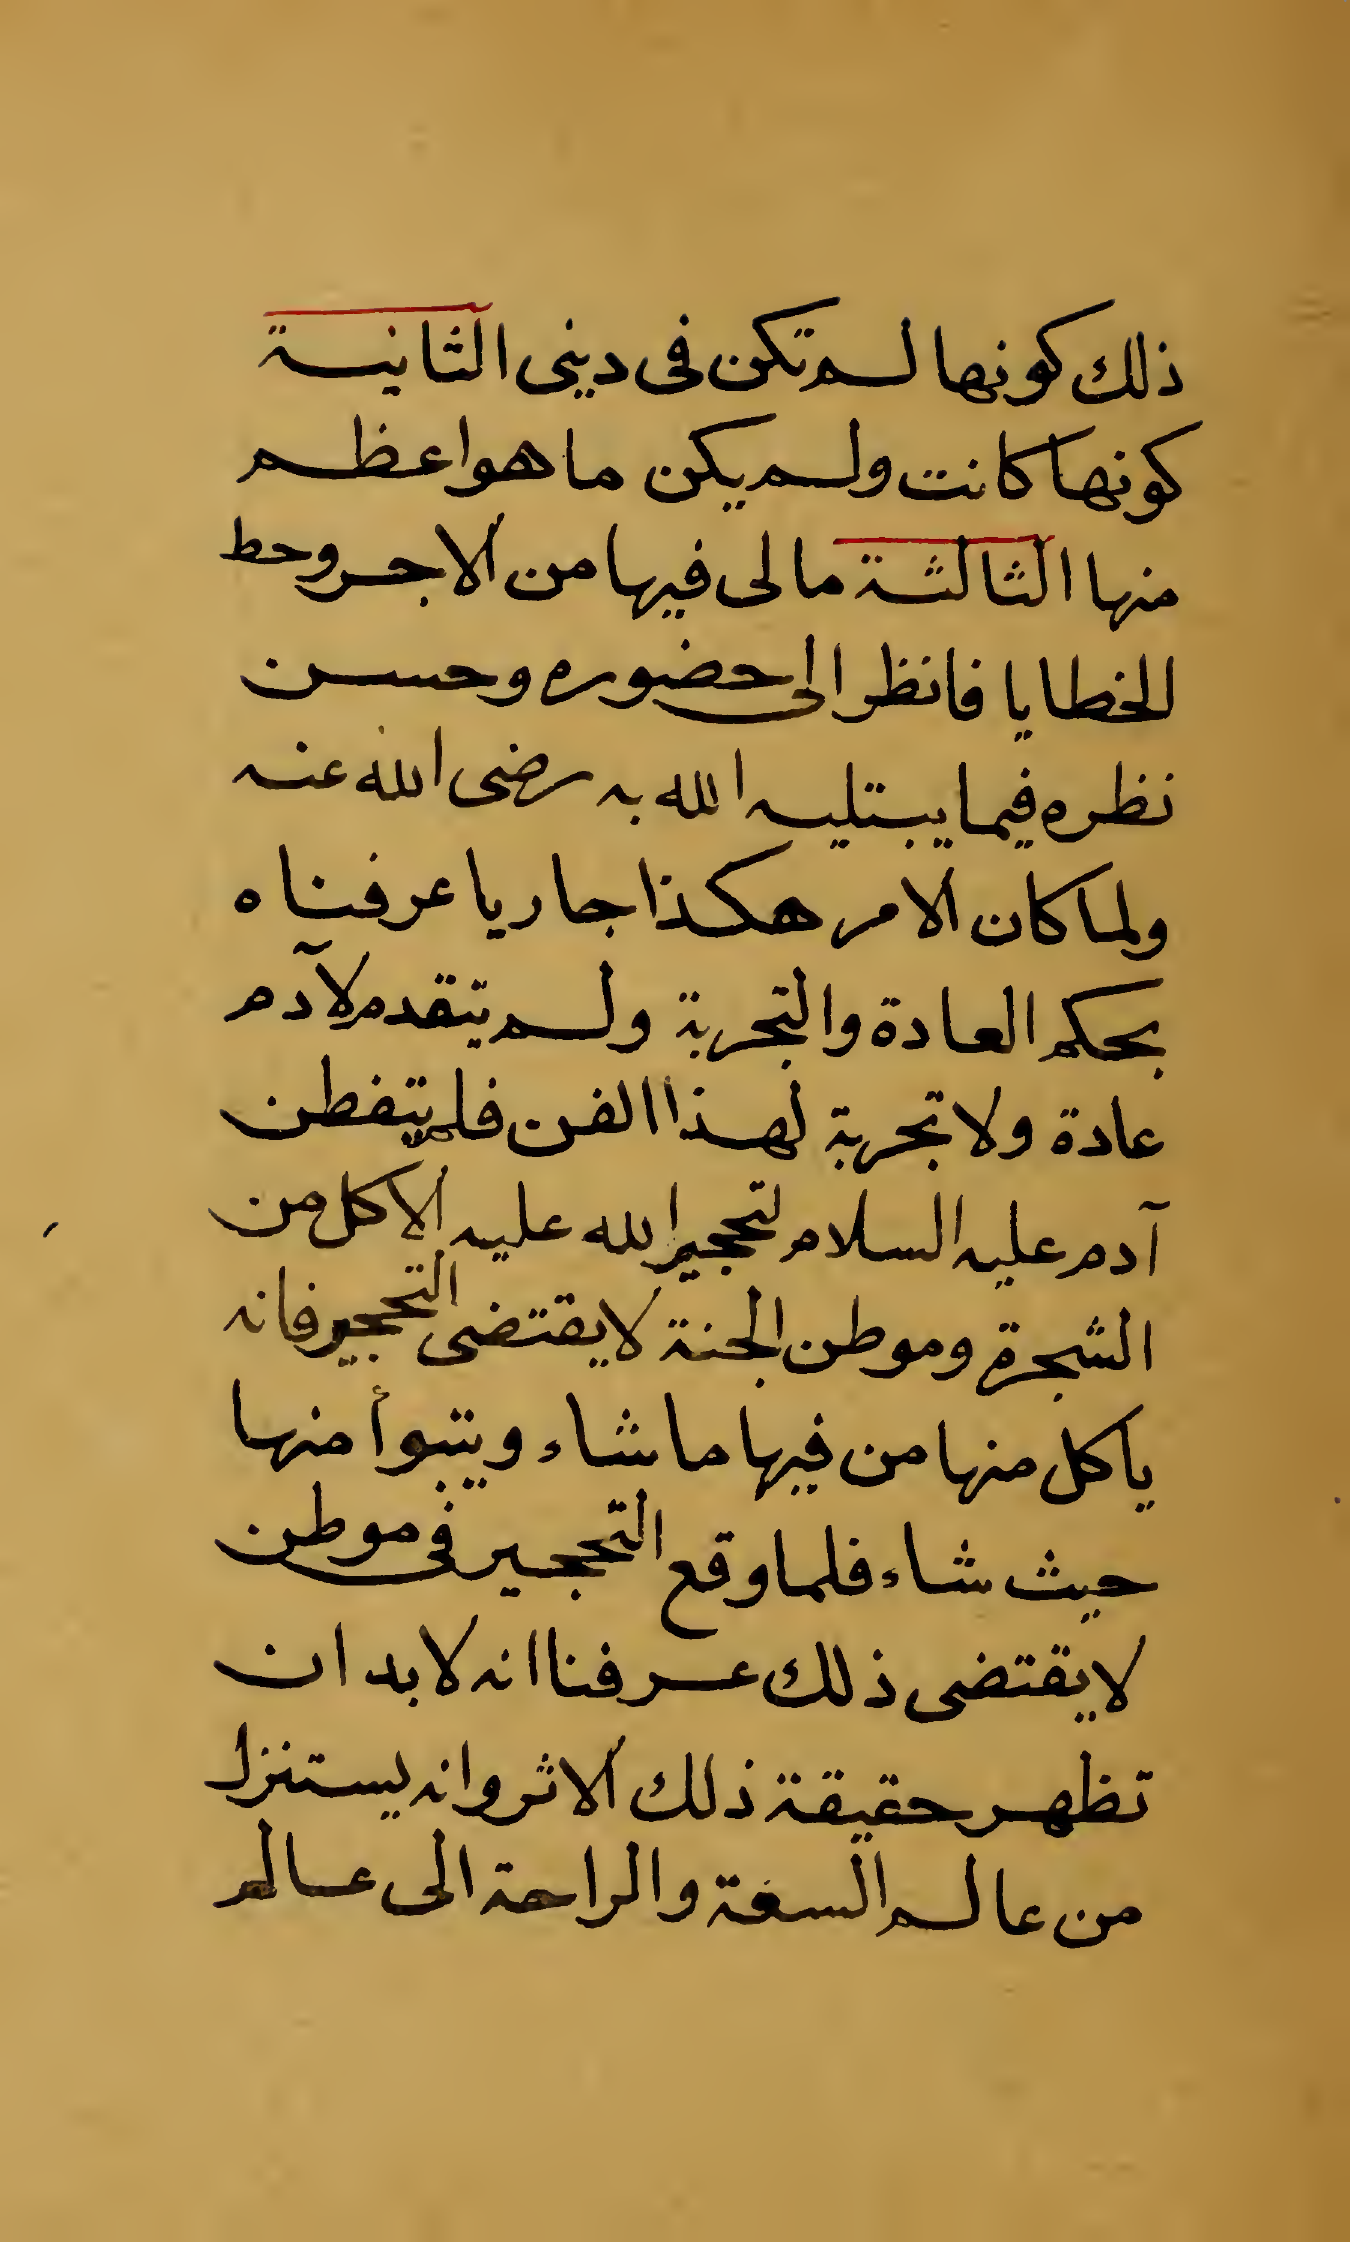 ذلك كونها لم تكن فى دينى الثانية
كونها كانت ولم يكن ما هو اعظم
منها الثالثة ما لى فيها من الاجر وحط
الخطايا فانظر الى حضوره وحسن
نظره فيما يبتليه الله به رضى الله عنه
ولما كان الامر هكذا جاريا عرفناه
بحكم العادة والتجربة ولم يتقدم لآدم
عادة ولا تجربة لهذا الفن فلم يتفطن
آدم عليه السلام لتحجير الله عليه الاكل من
الشجرة وموطن الجنة لا يقتضى التحجير فانه
ياكل منها من فيها ما شاء ويتبوأ منها
حيث شاء فلما وقع التحجير فى موطن
لا يقتضى ذلك عرفنا انه لا بد ان
تظهر حقيقة ذلك الاثر وانه يستنزل
من عالم السعة والراحة الى عالم